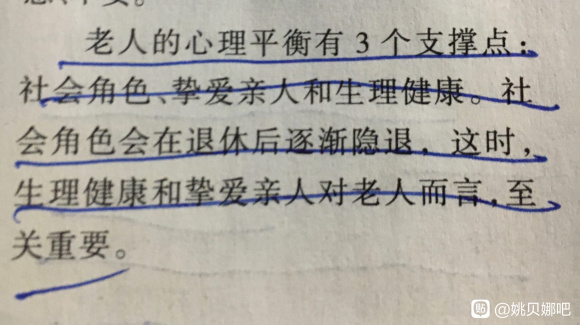 老人的心理平衡有3个支撑点：
社会角色、挚爱亲人和生理健康。社
会角色会在退休后逐渐隐退，这时，
生理健康和挚爱亲人对老人而言，至
关重要。
贴 @姚贝娜吧